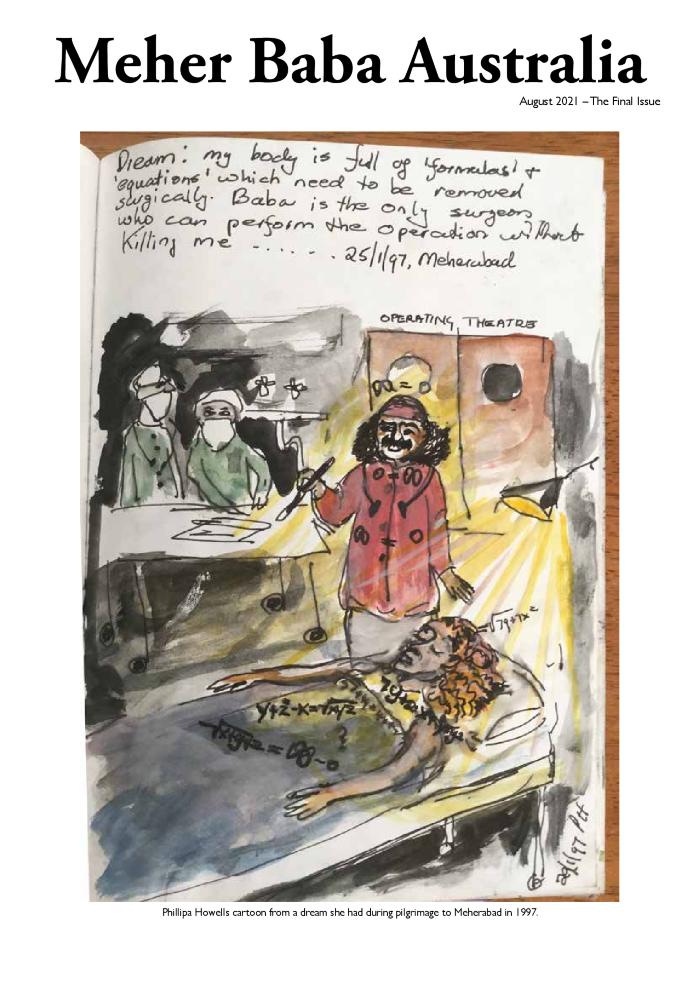 Meher Baba Australia
August 2021 – The Final Issue
Dream: my body is full of 'formulas' +
'equations' which need to be removed
surgically. Baba is the only surgeon
who can perform the operation without
Killing me ...... 25/1/97, Meherabad
OPERATING THEATRE
Phillipa Howells cartoon from a dream she had during pilgrimage to Meherabad in 1997.